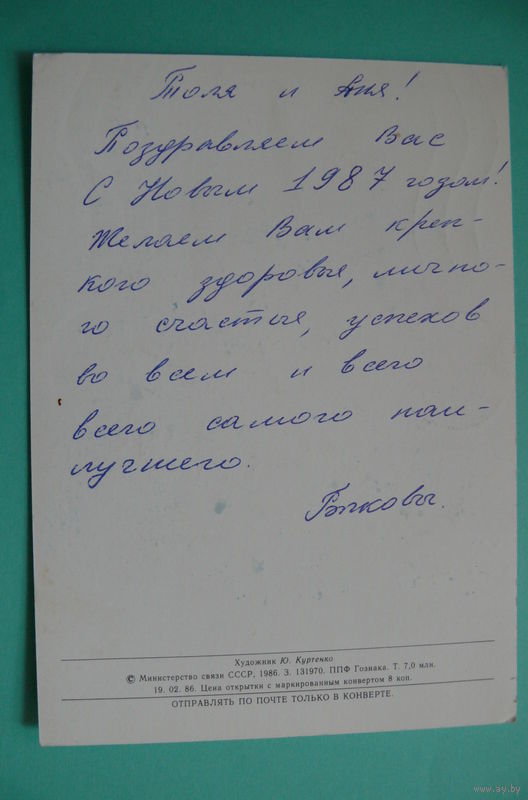 Толя и Аня!
Поздравляем Вас
С Новым 1987 годом!
Желаем Вам креп-
кого здоровья, лично-
го счастья, успехов
во всем и всего
всего самого наи-
лучшего.
Художник Ю. Куртенко
© Министерство связи СССР, 1986. З. 131970. ППФ Гознака. Т. 7,0 млн.
19. 02. 86. Цена открытки с маркированным конвертом 8 коп.
ОТПРАВЛЯТЬ ПО ПОЧТЕ ТОЛЬКО В КОНВЕРТЕ.
www.ay.by